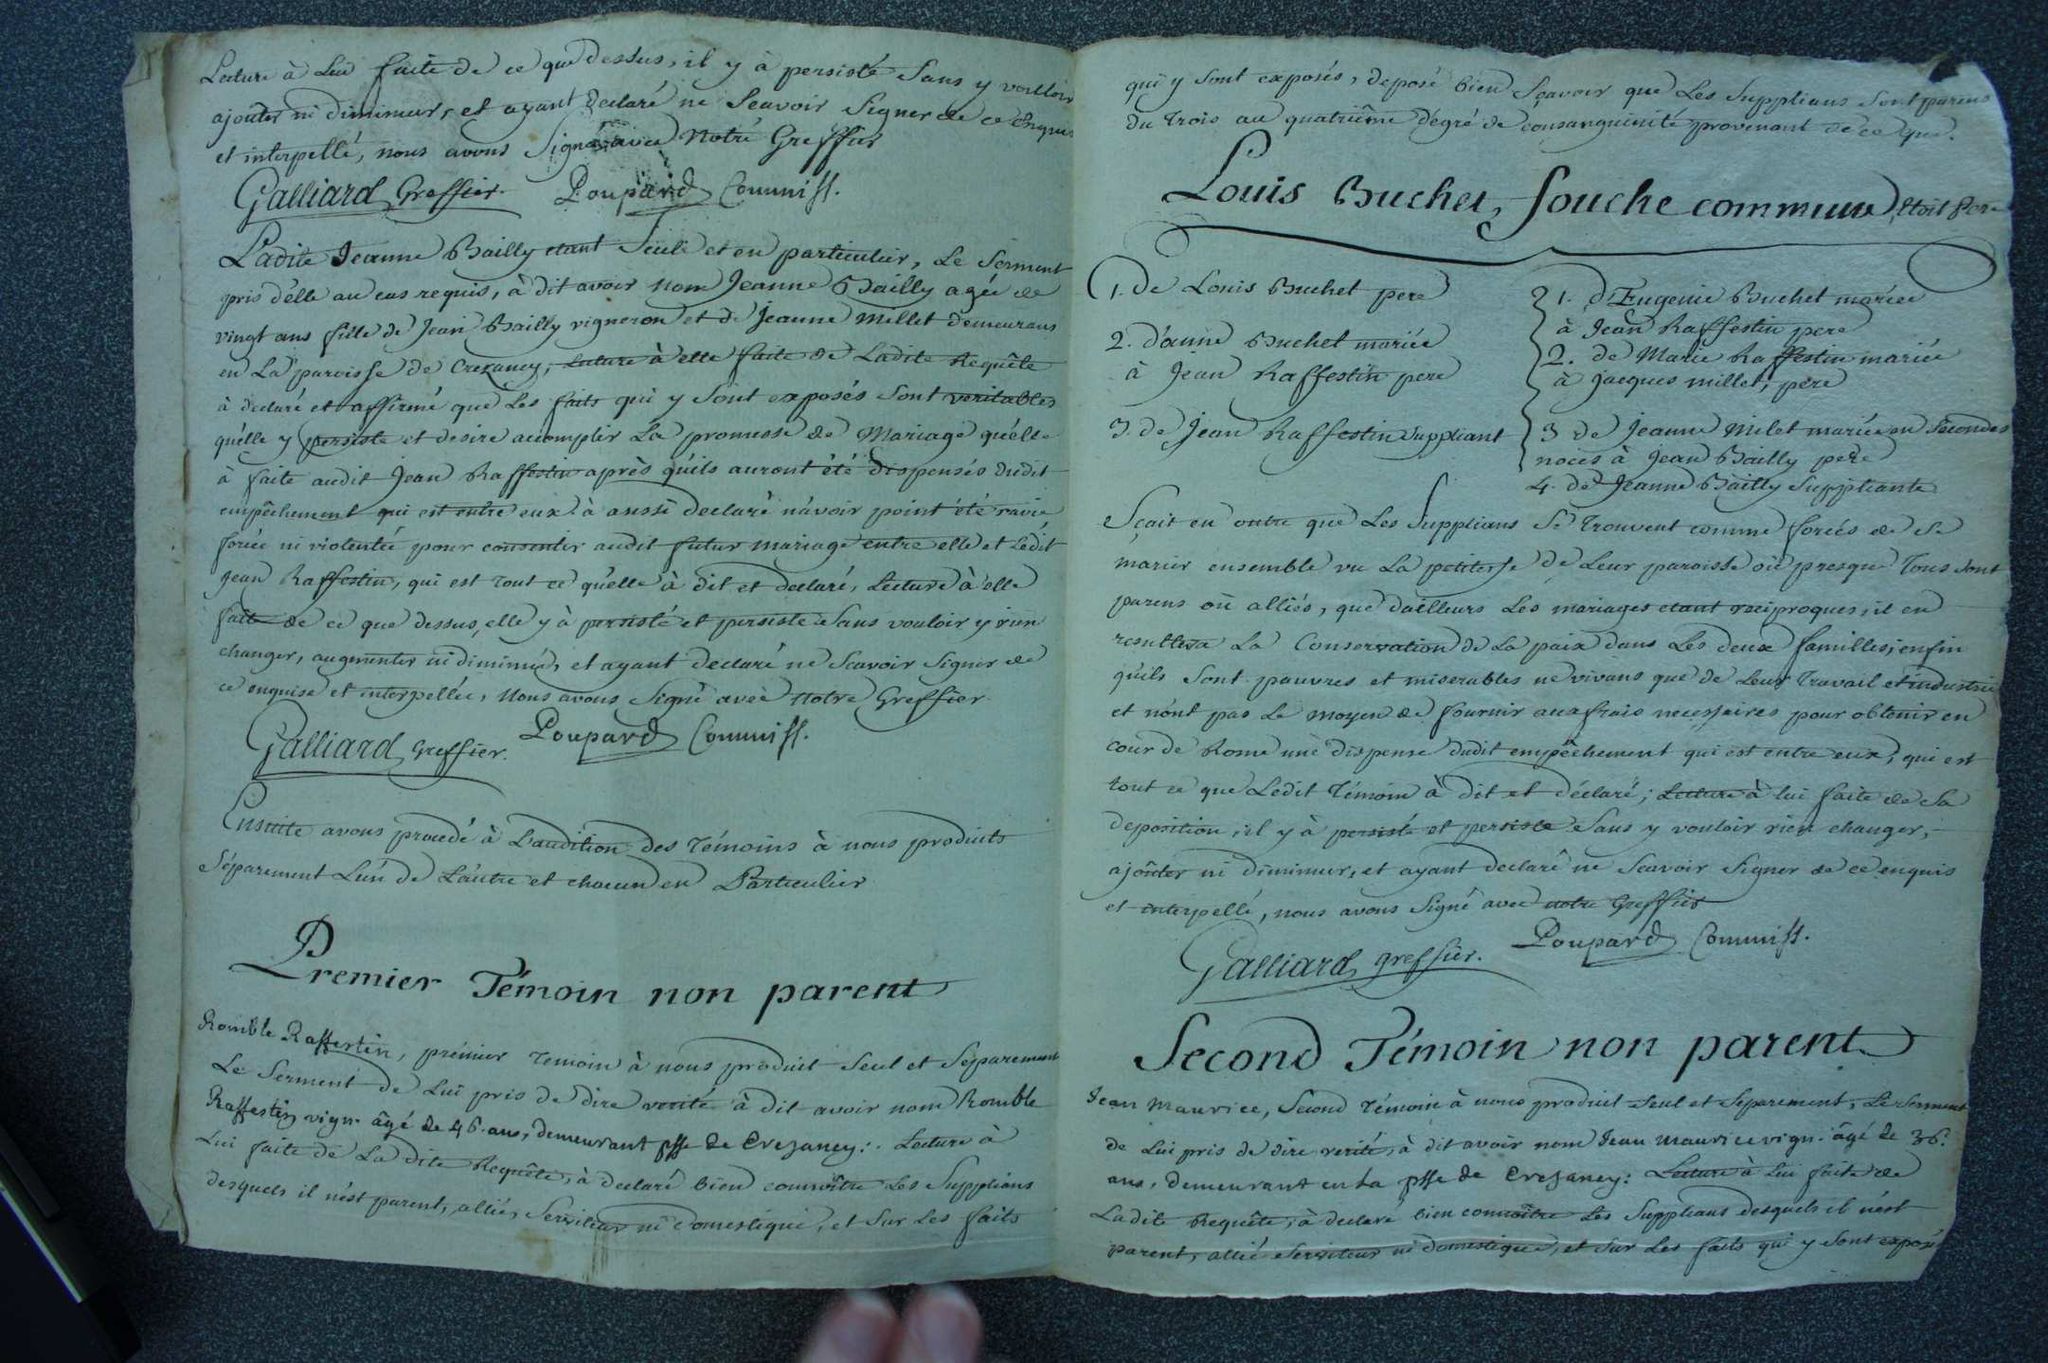 Lecture à Lui faite de ce que dessus, il y à persisté Sans y voulloir
ajoûter ni diminuer, et ayant declaré ne Scavoir Signer de ce enquis
et interpellé, nous avons Signé avec Notre Greffier
Galliard Greffier. Poupard Commiss.
Ladite Jeanne Bailly etant Seule et en particulier, Le Serment
pris d'elle au cas requis, à dit avoir nom Jeanne Bailly agée de
vingt ans fille de Jean Bailly vigneron et de Jeanne Millet demeurans
en La paroisse de Crezancy, Lecture à elle faite de Ladite Requête
à declaré et affirmé que Les faits qui y Sont exposés Sont veritables
qu'elle y persiste et desire accomplir La promesse de Mariage qu'elle
à faite audit Jean Raffestin après qu'ils auront été dispensés dudit
empêchement qui est entre eux à aussi declaré n'avoir point été ravie
forcée ni violentée pour consentir audit futur mariage entre elle et Ledit
Jean Raffestin, qui est tout ce qu'elle à dit et declaré, Lecture à elle
faite de ce que dessus, elle y à persisté et persiste Sans vouloir y rien
changer, augmenter ni diminuer, et ayant declaré ne Scavoir Signer de
ce enquise et interpellée, Nous avons Signé avec notre Greffier.
Galliard Greffier. Poupard Commiss.
Ensuite avons procedé à L'audition des Témoins à nous produits
Séparement L'un de L'autre et chacun en Particulier
Premier Témoin non parent
Romble Raffestin, prémier temoin à nous produit Seul et Séparement
Le Serment de Lui pris de dire verité à dit avoir nom Romble
Raffestin vign. âgé de 46. ans, demeurant psse de Crezancy: Lecture à
Lui faite de La dite Requête, à declaré bien connoître Les Supplians
desquels il n'est parent, allié, Serviteur ni Domestique, et Sur Les faits
qui y Sont exposés, deposé bien Sçavoir que Les Supplians Sont parens
du Trois au quatrième dégré de consanguinité provenant de ce que.
Louis Buchet, Souche commune, étoit Pere
1. de Louis Buchet pere
2. d'anne Buchet mariée
à Jean Raffestin pere
3. de Jean Raffestin Suppliant
1. d'Eugenie Buchet mariée
à Jean Raffestin pere
2. de Marie Raffestin mariée
à Jacques Millet, pere
3 de Jeanne Milet mariée en Secondes
noces à Jean Bailly pere
4. de Jeanne Bailly Suppliante
Sçait en outre que Les Supplians Se Trouvent comme forcés de Se
marier ensemble vu La petitesse de Leur paroisse où presque Tous Sont
parens ou alliés, que d'ailleurs Les mariages etant réciproques, il en
resultera La Conservation de La paix dans Les deux familles, enfin
qu'ils Sont pauvres et miserables ne vivans que de Leur Travail et industrie
et n'ont pas Le moyen de fournir aux frais necessaires pour obtenir en
cour de Rome une dispense dudit empêchement qui est entre eux, qui est
tout ce que Ledit Témoin à dit et déclaré; Lecture à lui faite de Sa
deposition, il y à persisté et persiste Sans y vouloir rien changer,
ajoûter ni diminuer, et ayant declaré ne Scavoir Signer de ce enquis
et interpellé, nous avons Signé avec notre Greffier
Galliard greffier. Poupard Commiss.
Second Témoin non parent
Jean Maurice, Second Témoin à nous produit Seul et Séparement, Le Serment
de Lui pris de dire verité, à dit avoir nom Jean Maurice vign. âgé de 36.
ans, demeurant en La psse de Crezancy: Lecture à Lui faite de
Ladite Requête, à declaré bien connoître Les Supplians desquels il n'est
parent, allié Serviteur ni domestique, et Sur Les faits qui y Sont exposé